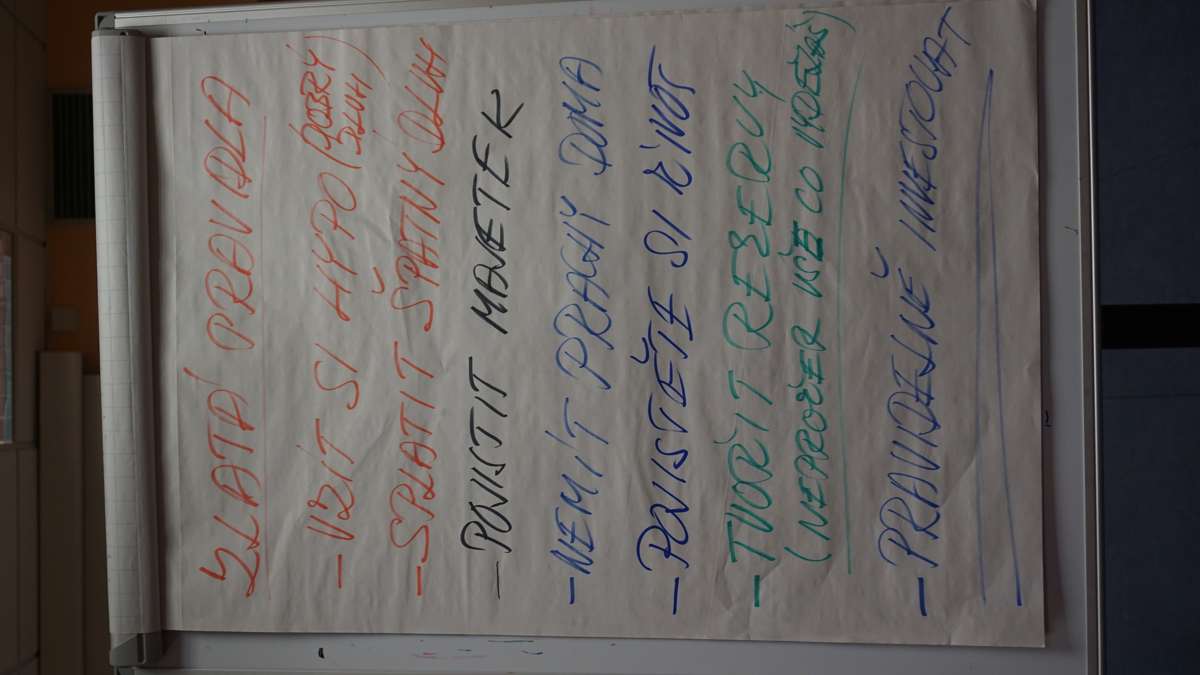 ZLATÁ PRAVIDLA
- VZÍT SI HYPO (DOBRÝ DLUH)
- SPLATIT ŠPATNÝ DLUH
- POJISTIT MAJETEK
- NEMÍT PRACHY DOMA
- POJISTĚTE SI ŽIVOT
- TVOŘIT REZERVY
(NEPROŽER VŠE CO VYDĚLÁŠ)
- PRAVIDELNĚ INVESTOVAT